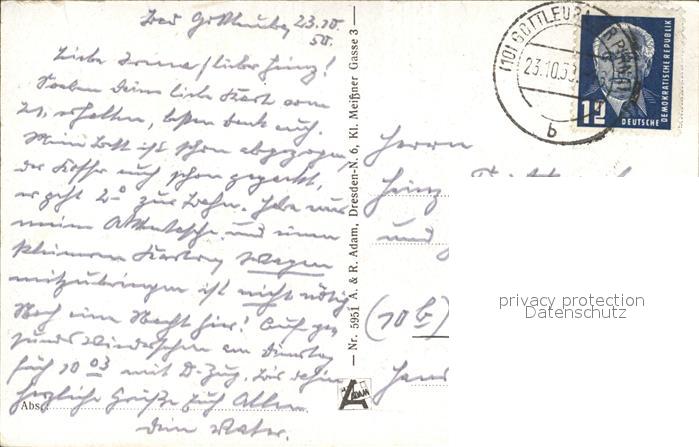 Bad Gottleuba, 23.10.
50.
Liebe Irma, lieber Heinz!
Soeben Deine liebe Karte vom
21. erhalten, besten Dank auch.
Mein Bett ist schon abgezogen,
der Koffer auch schon gepackt,
er geht zur Bahn. Habe nur
meine Aktentasche und einen
kleinen Karton. Wagen
mitzubringen ist nicht nötig
Noch eine Nacht hier! Auf ges
undes Wiedersehen am Dienstag
früh 10 03 mit D-Zug. Bis dahin
herzliche Grüße Euch Allen
Dein Vater.
Abs.:
— Nr. 5951 A. & R. Adam, Dresden-N. 6, Kl. Meißner Gasse 3 —
ADAM
(10) GOTTLEUBA
23.10.53
b
12
DEUTSCHE
DEMOKRATISCHE REPUBLIK
Herrn
Heinz
und
(10 b)
privacy protection
Datenschutz